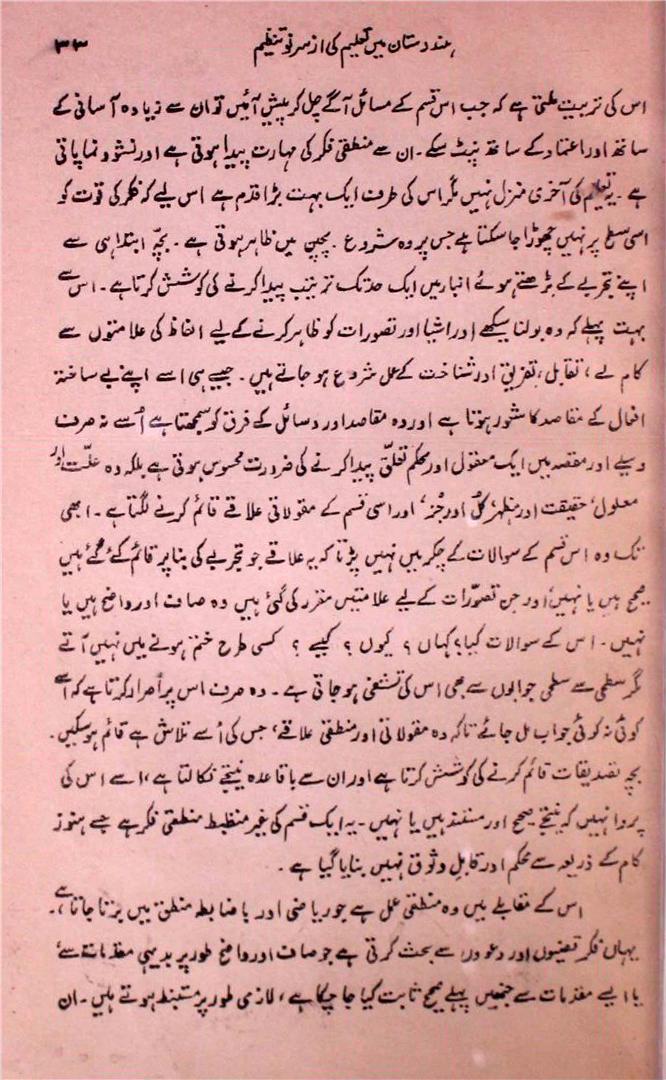 ہندوستان میں تعلیم کی از سر نو تنظیم ۳۳
اس کی تربیت ملتی ہے کہ جب اس قسم کے مسائل آگے چل کر پیش آئیں تو ان سے زیادہ آسانی کے
ساتھ اور اعتماد کے ساتھ نپٹ سکے۔ ان سے منطقی فکر کی مہارت پیدا ہوتی ہے اور نشو و نما پاتی
ہے۔ یہ تعلیم کی آخری منزل نہیں مگر اس کی طرف ایک بہت بڑا قدم ہے اس لیے کہ فکر کی قوت کو
اسی سطح پر نہیں چھوڑا جا سکتا ہے جس پر وہ شروع بچپن میں ظاہر ہوتی ہے۔ بچّہ ابتدا ہی سے
اپنے تجربے کے بڑھتے ہوئے انبار میں ایک حد تک ترتیب پیدا کرنے کی کوشش کرتا ہے۔ اس سے
بہت پہلے کہ وہ بولنا سیکھے اور اشیا اور تصورات کو ظاہر کرنے کے لیے الفاظ کی علامتوں سے
کام لے، تقابل، تفریق اور شناخت کے عمل شروع ہو جاتے ہیں۔ جیسے ہی اسے اپنے بے ساختہ
افعال کے مقاصد کا شعور ہوتا ہے اور وہ مقاصد اور وسائل کے فرق کو سمجھتا ہے اُسے نہ صرف
وسیلے اور مقصد میں ایک معقول اور محکم تعلق پیدا کرنے کی ضرورت محسوس ہوتی ہے بلکہ وہ علّت اور
معلول، حقیقت اور مظہر، کُل اور جُز، اور اسی قسم کے مقولاتی علاقے قائم کرنے لگتا ہے۔ ابھی
تک وہ اس قسم کے سوالات کے چکر میں نہیں پڑتا کہ یہ علاقے جو تجربے کی بنا پر قائم کئے گئے ہیں
صحیح ہیں یا نہیں، اور جن تصوّرات کے لیے علامتیں مقرر کی گئی ہیں وہ صاف اور واضح ہیں یا
نہیں۔ اس کے سوالات کیا؟ کہاں؟ کیوں؟ کیسے؟ کسی طرح ختم ہونے میں نہیں آتے
مگر سطحی سے سطحی جوابوں سے بھی اس کی تشفی ہو جاتی ہے۔ وہ صرف اس پر اصرار کرتا ہے کہ اُسے
کوئی نہ کوئی جواب مل جائے تاکہ وہ مقولاتی اور منطقی علاقے، جس کی اُسے تلاش ہے قائم ہو سکیں۔
بچہ تصدیقات قائم کرنے کی کوشش کرتا ہے اور ان سے باقاعدہ نتیجے نکالتا ہے، اسے اس کی
پروا نہیں کہ نتیجے صحیح اور مستند ہیں یا نہیں۔ یہ ایک قسم کی غیر منظبط منطقی فکر ہے جسے ہنوز
کام کے ذریعہ سے محکم اور قابل وثوق نہیں بنایا گیا ہے۔
اس کے مقابلے میں وہ منطقی عمل ہے جو ریاضی اور باضابطہ منطق میں برتا جاتا ہے۔
یہاں فکر قضیوں اور دعووں سے بحث کرتی ہے جو صاف اور واضح طور پر بدیہی مقدمات سے
یا ایسے مقدمات سے جنھیں پہلے صحیح ثابت کیا جا چکا ہے، لازمی طور پر مستنبط ہوتے ہیں۔ ان